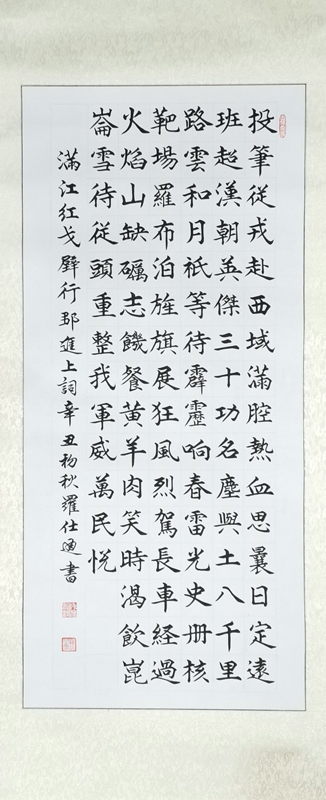 投筆従戎赴西域滿腔熱血思曩日定遠
班超漢朝英傑三十功名塵與土八千里
路雲和月祇等待霹靂响春雷光史册核
靶場羅布泊旌旗展狂風烈駕長車経過
火焰山缺礪志饑餐黃羊肉笑時渴飲崑
崙雪待従頭重整我軍威萬民悦
滿江紅戈壁行進上詞辛丑初秋羅仕通書